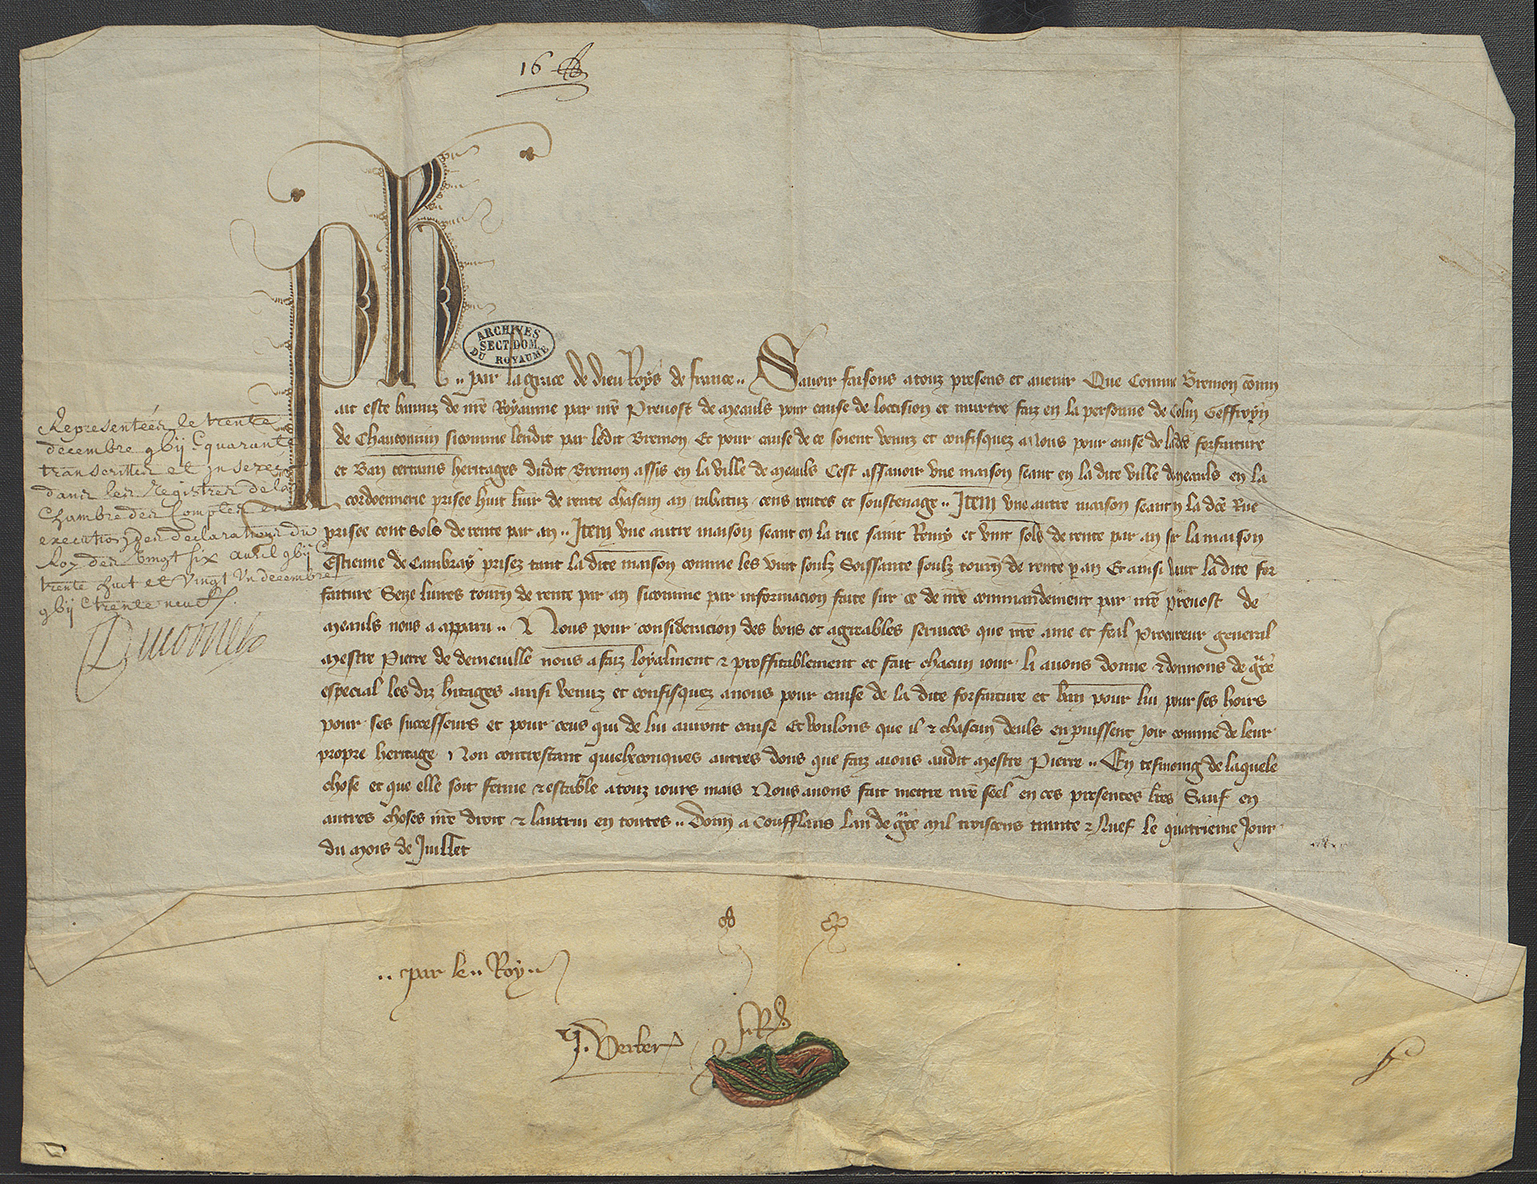 16
Ph
ARCHIVES
SECT. DOM.
DU ROYAUME
.. par la grace de dieu Roys de france .. Savoir faisons a touz presens et avenir Que Comme Bremon
ait este banniz de nre Royaume par nre Prevost de meauls pour cause de loccision et murtre faiz en la personne de Colin Geffroy
de Chauconnin sicomme lendit par ledit Bremon Et pour cause de ce soient venuz et confisquez a nous pour cause de forfaiture
et Ban certains heritages dudit Bremon assis en la ville de meauls Cest assavoir une maison seant en la dite ville de meauls en la
cordoennerie prisee huit livr de rente chascun an rabatuz cens rentes et soustenage .. Item une autre maison seant en la dce Rue
prisee cent sols de rente par an .. Item une autre maison seant en la rue saint Remy et vint sols de rente par an sr la maison
Estienne de Cambray prisez tant la dite maison comme les vint soulz Soissante soulz tourn de rente p an Et ainsi vaut la dite for
faiture Seze livres tourn de rente par an sicomme par informacion faite sur ce de nre commandement par nre prevost de
meauls nous a apparu .. Nous pour consideracion des bons et agreables services que nre ame et feal Procureur general
mestre Pierre de demeville nous a faiz loyalment & proffitablement et fait chacun iour li avons donne & donnons de gce
especial les diz hitages ainsi venuz et confisquez a nous pour cause de la dite forfaiture et ban pour lui pour ses hoirs
pour ses successeurs et pour ceus qui de lui auront cause Et voulons que il & chascun deuls en puissent joir comme de leur
propre heritage Non contrestant quielxconques autres dons que faiz aions audit mestre Pierre .. En tesmoing de laquele
chose et que elle soit ferme & estable a touz iours mais Nous avons fait mettre nre seel en ces presentes lres Sauf en
autres choses nre droit & lautrui en toutes .. Donn a Confflans lan de gce mil troiscens trente & Nuef le quatrieme Jour
du mois de Juillet
Representées le trente
decembre gbij quarante
transcrittes et inserez
dans les Registres de la
Chambre des Comptes en
execution des declarations du
Roy des vingt six avril gbij
trente huit et vingt un decembre
gbij trente neuf.
Ducornet
.. par le .. Roy ..
J. Verber